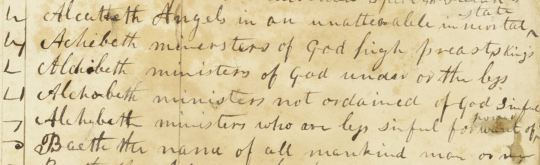 state
Alcabeth Angels in an unalterable immortal
Achebeth minersters of God high preasts kings
Alchibeth ministers of God under or the less
Alchobeth ministers not ordained of God sinful
Alchubeth ministers who are less sinful for want of power
Baeth the name of all mankind man or